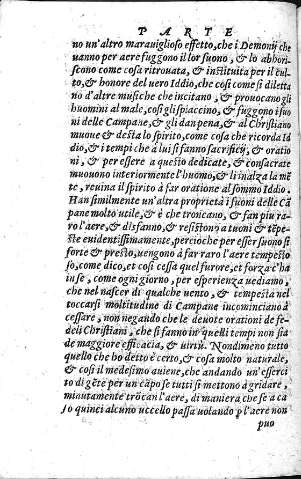 PARTE
no un'altro marauiglioso effetto, che i Demonij che
vanno per aere fuggono il lor suono, & lo abhori-
scono come cosa ritrouata, & instituita per il cul-
to, & honore del uero Iddio, che cosi come si diletta
no d'altre musiche che incitano, & prouocano gli
huomini al male, cosi gli spiaccino, & fuggono i suo
ni delle Campane, & gli dan pena, & al Christiano
muoue & desta lo spirito, come cosa che ricorda Id
dio, & i tempi che à lui si fanno sacrificij, & oratio
ni, & per essere a questo dedicate, & consacrate
muouono interiormente l'huomo, & li inalza la mẽ
te, reuina il spirito à far oratione al sommo Iddio.
Han similmente un'altra proprietà i suoni delle Cã
pane molto utile, & è che troncano, & fan piu ra-
ro l'aere, & disfanno, & resistono a tuoni & tẽpe-
ste euidentissimamente, percioche per esser suono si
forte & presto, uengono à far raro l'aere tempesto
so, come dico, et cosi cessa quel furore, et forza c'ha
in se, come ogni giorno, per esperienza uediamo,
che nel nascer di qualche uento, & tempesta nel
toccarsi moltitudine di Campane incominciano à
cessare, non negando che le deuote orationi de fe-
deli Christiani, che si fanno in quelli tempi non sia
de maggiore efficacia, & uirtù. Nondimeno tutto
quello che ho detto è certo, & cosa molto naturale,
& cosi il medesimo auiene, che andando un'esserci
to di gẽte per un cãpo se tutti si mettono à gridare,
miautamente trõcan l'aere, di maniera che se a ca
so quinci alcuno uccello passa uolando p l'aere non
puo